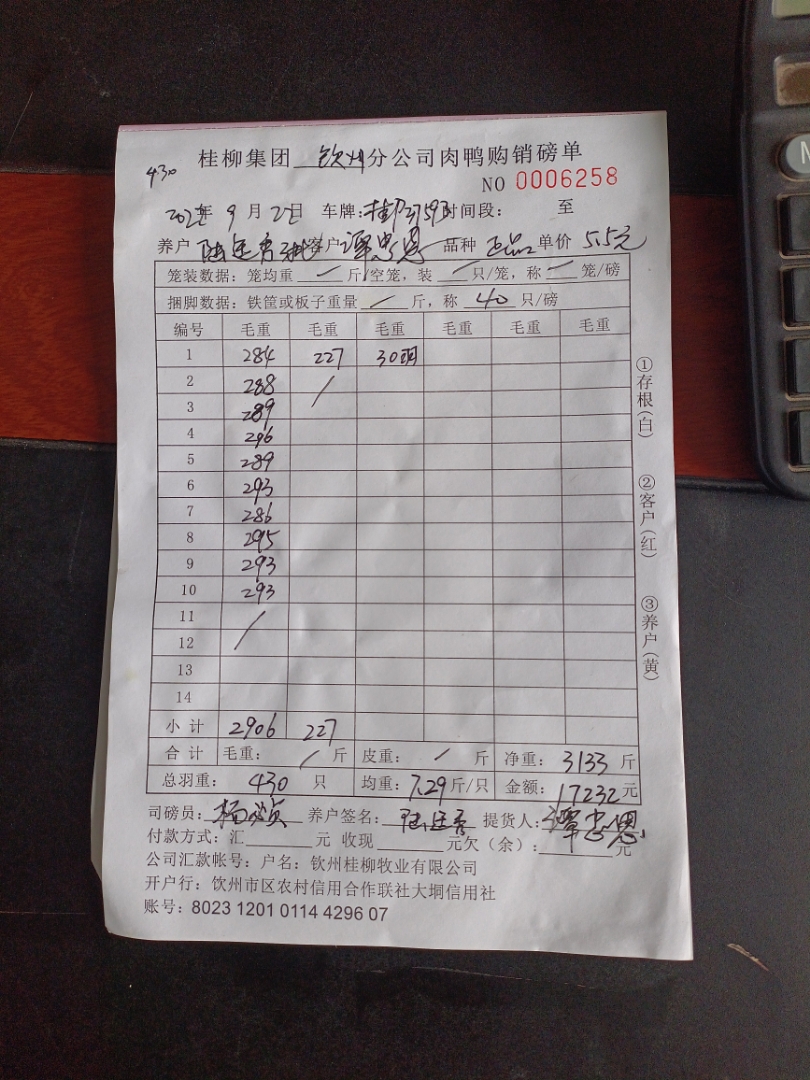 430
桂柳集团 钦州 分公司肉鸭购销磅单
NO 0006258
9月2日 车牌: 时间段: 至
养户 陆廷秀 客户 谭忠恩 品种 正品 单价 5.5元
笼装数据: 笼均重 / 斤/空笼, 装 / 只/笼, 称 / 笼/磅
捆脚数据: 铁筐或板子重量 / 斤, 称 40 只/磅
编号 毛重 毛重 毛重 毛重 毛重 毛重
1 284 227 30羽
2 288 /
3 289
4 296
5 289
6 293
7 286
8 295
9 293
10 293
11 /
12
13
14
小计 2906 227
合计 毛重: / 斤 皮重: / 斤 净重: 3133 斤
总羽重: 430 只 均重: 7.29斤/只 金额: 17232元
司磅员: 养户签名: 陆廷秀 提货人: 谭忠恩
付款方式: 汇 元 收现 元欠(余): 元
公司汇款帐号: 户名: 钦州桂柳牧业有限公司
开户行: 饮州市区农村信用合作联社大垌信用社
账号: 8023 1201 0114 4296 07
①存根(白)
②客户(红)
③养户(黄)
M